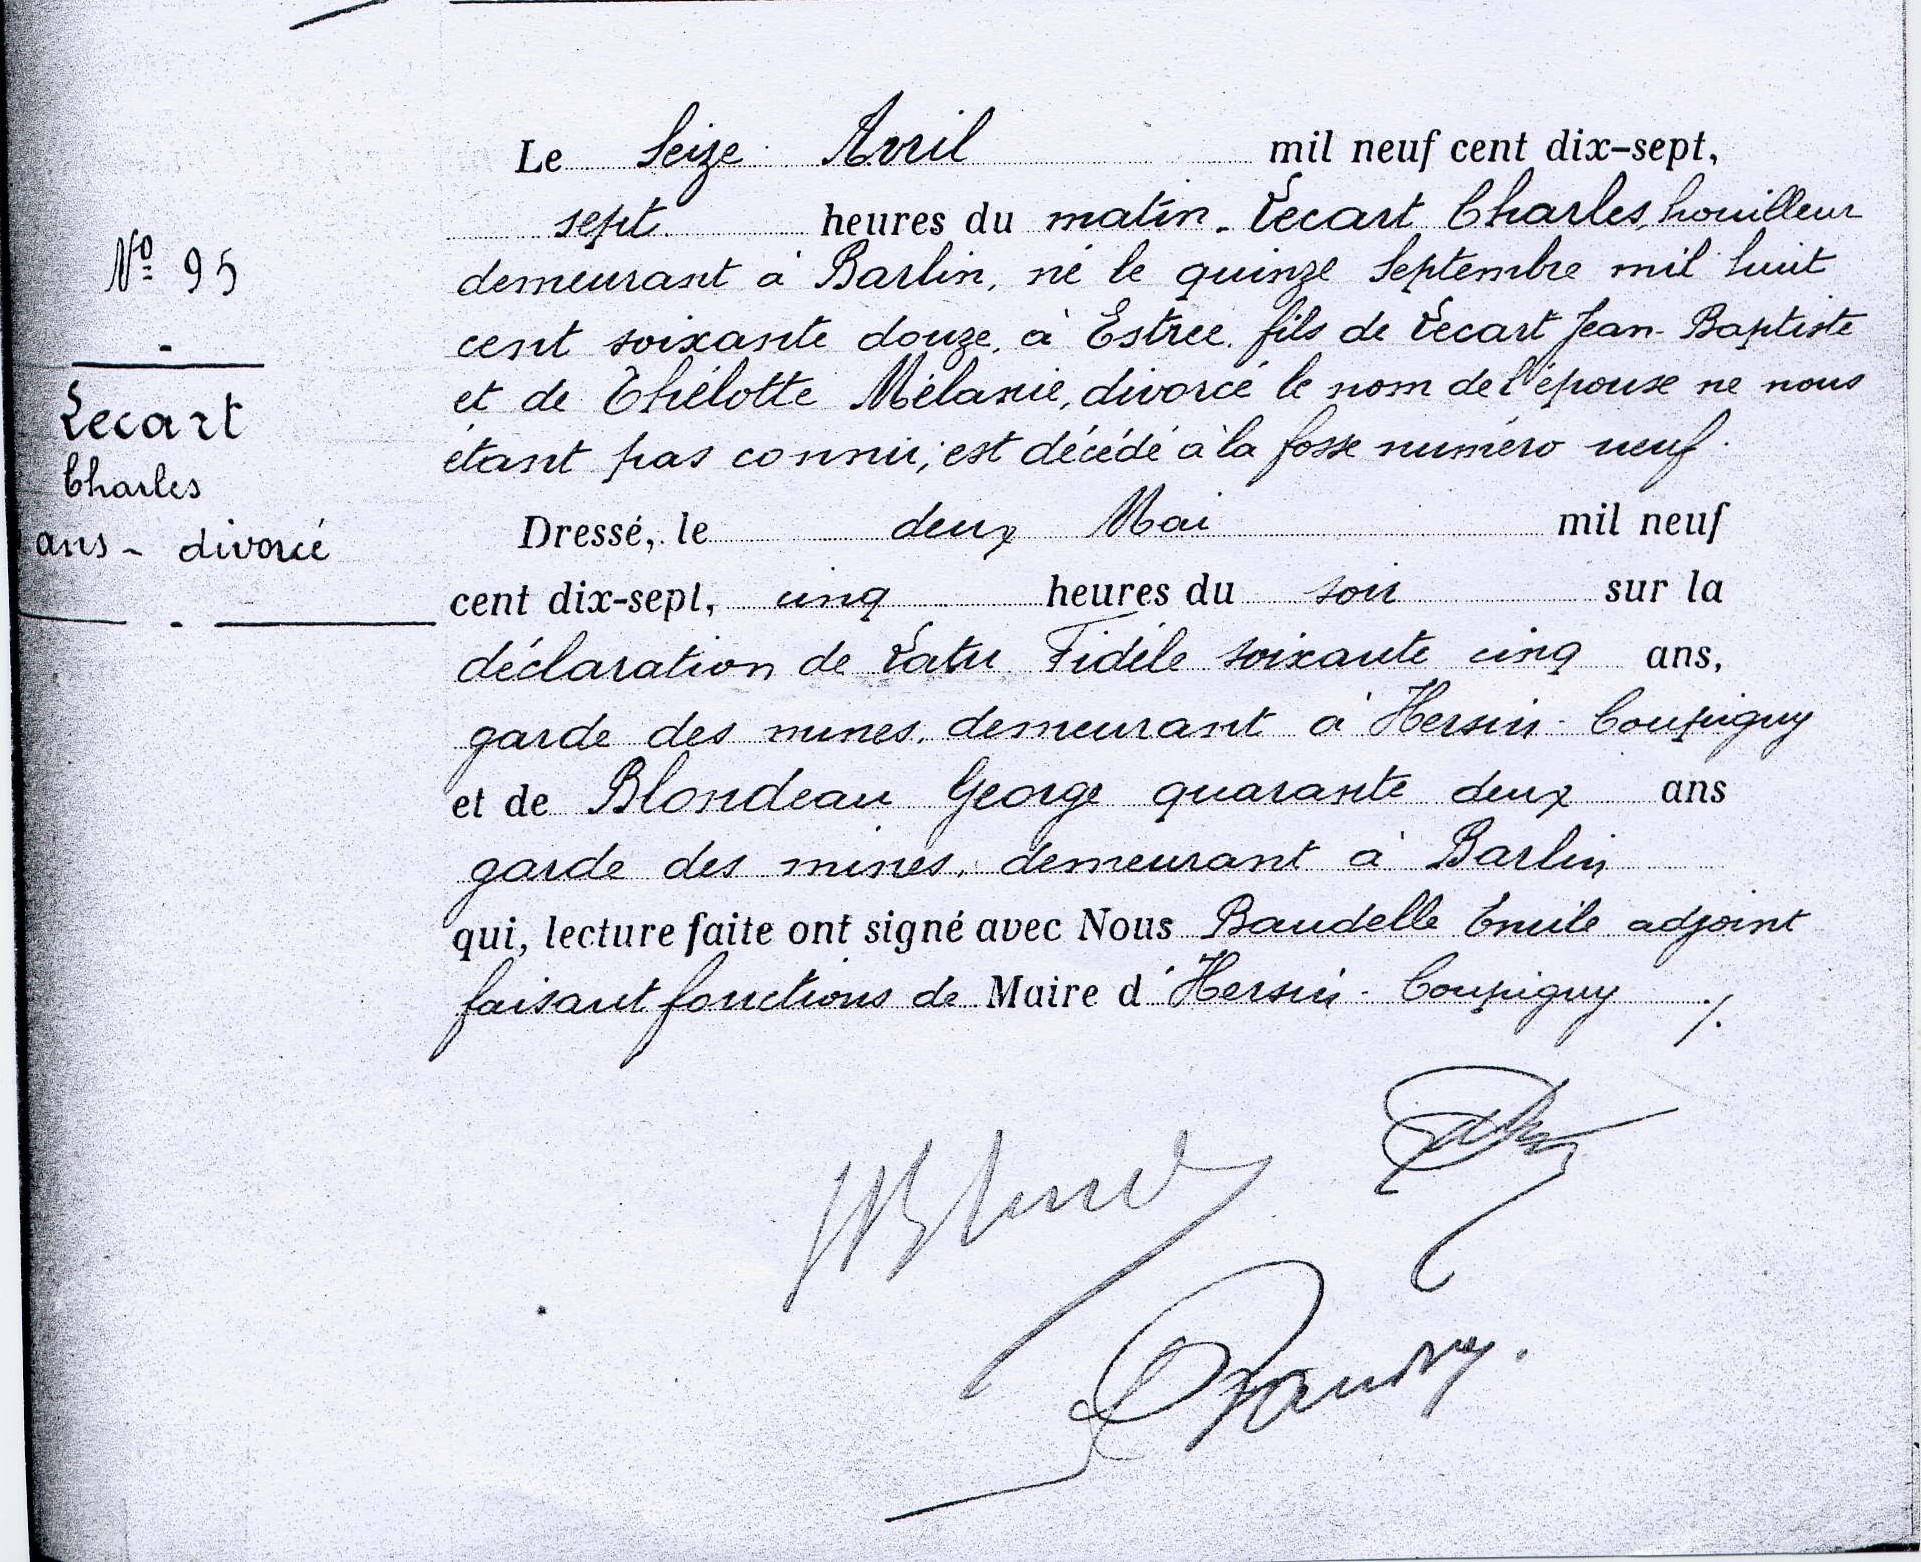 Le Seize Avril mil neuf cent dix-sept,
sept heures du matin. Lecart Charles, houilleur
demeurant à Barlin, né le quinze Septembre mil huit
cent soixante douze, à Estrée, fils de Lecart Jean-Baptiste
et de Thélotte Mélanie, divorcé le nom de l'épouse ne nous
étant pas connu, est décédé à la fosse numéro neuf.
Dressé, le deux Mai mil neuf
cent dix-sept, cinq heures du soir sur la
déclaration de Latu Fidèle soixante cinq ans,
garde des mines, demeurant à Hersin-Coupigny
et de Blondeau George quarante deux ans
garde des mines, demeurant à Barlin
qui, lecture faite ont signé avec Nous Baudelle Emile adjoint
faisant fonctions de Maire d'Hersin-Coupigny ./.
Nº 95
Lecart
Charles
ans - divorcé